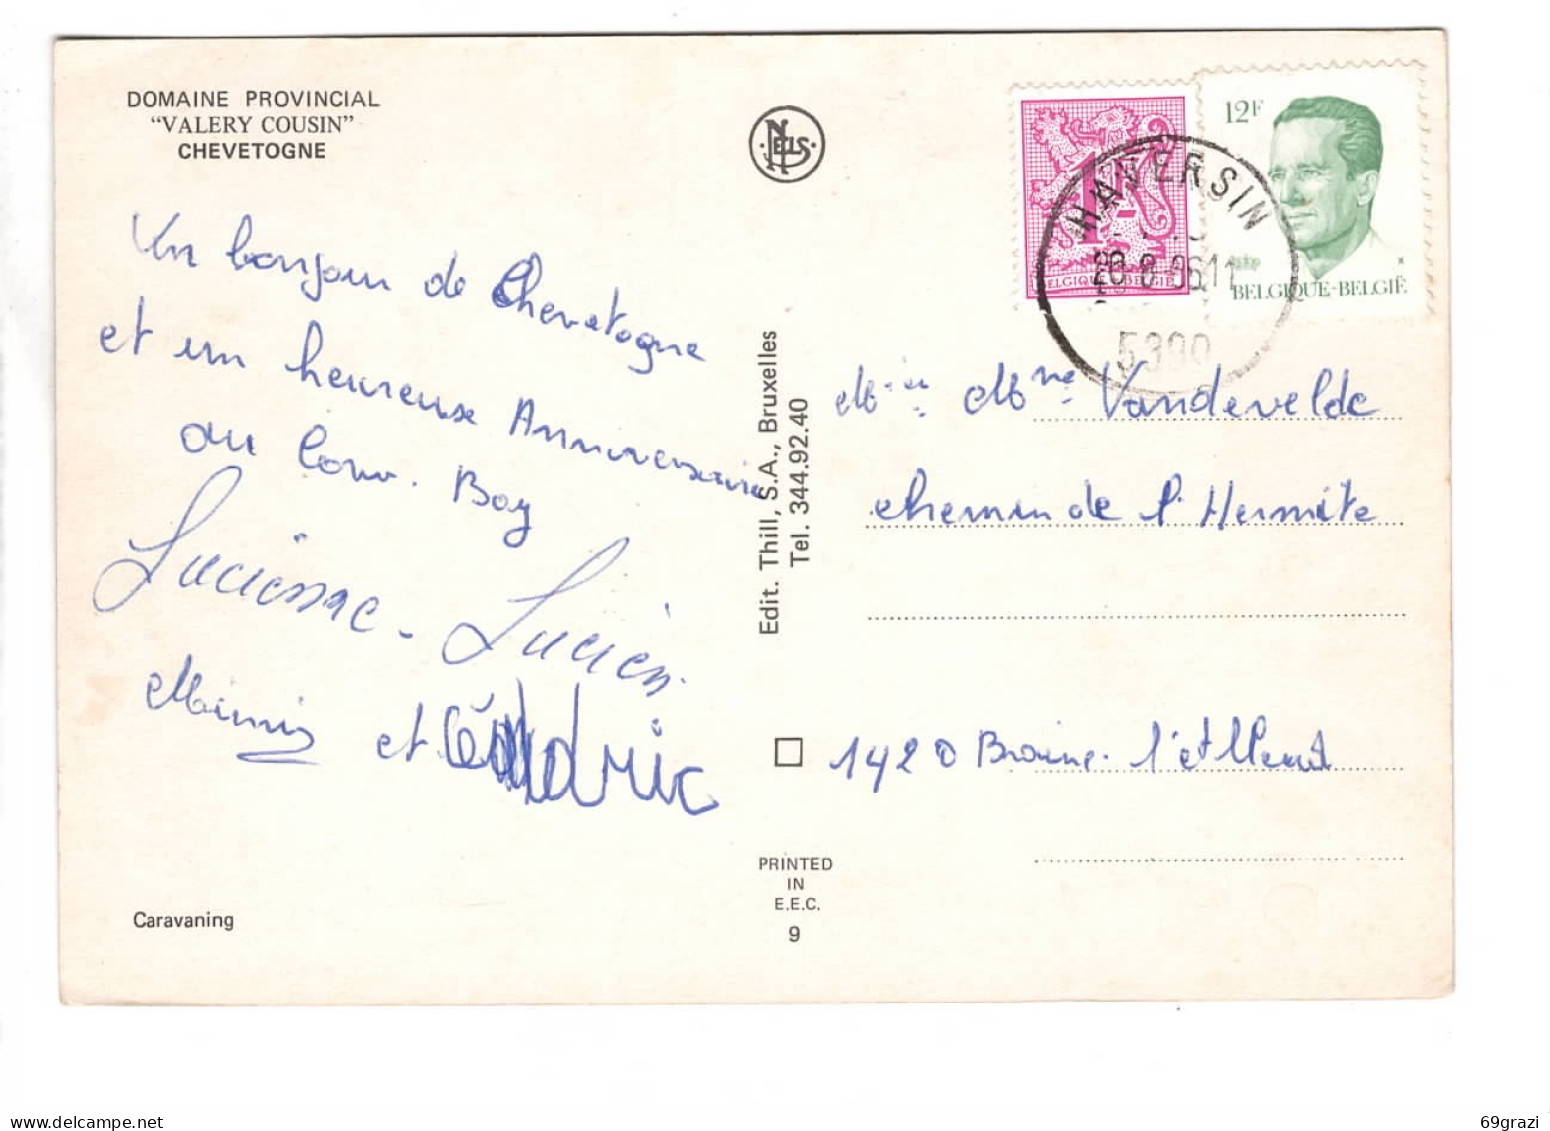 DOMAINE PROVINCIAL
"VALERY COUSIN"
CHEVETOGNE
NELS
12F
1F
BELGIQUE-BELGIË
BELGIQUE-BELGIË
HAVERSIN
5390
Un bonjour de Chevetogne
et un heureux Anniversaire
au Cow. Boy
Lucienne - Lucien
Mimi et Cédric
Edit. Thill, S.A., Bruxelles
Tel. 344.92.40
Mr et Mme Vandevelde
chemin de l'Hermite
1420 Braine-l'Alleud
Caravaning
PRINTED
IN
E.E.C.
9
delcampe.net
69grazi